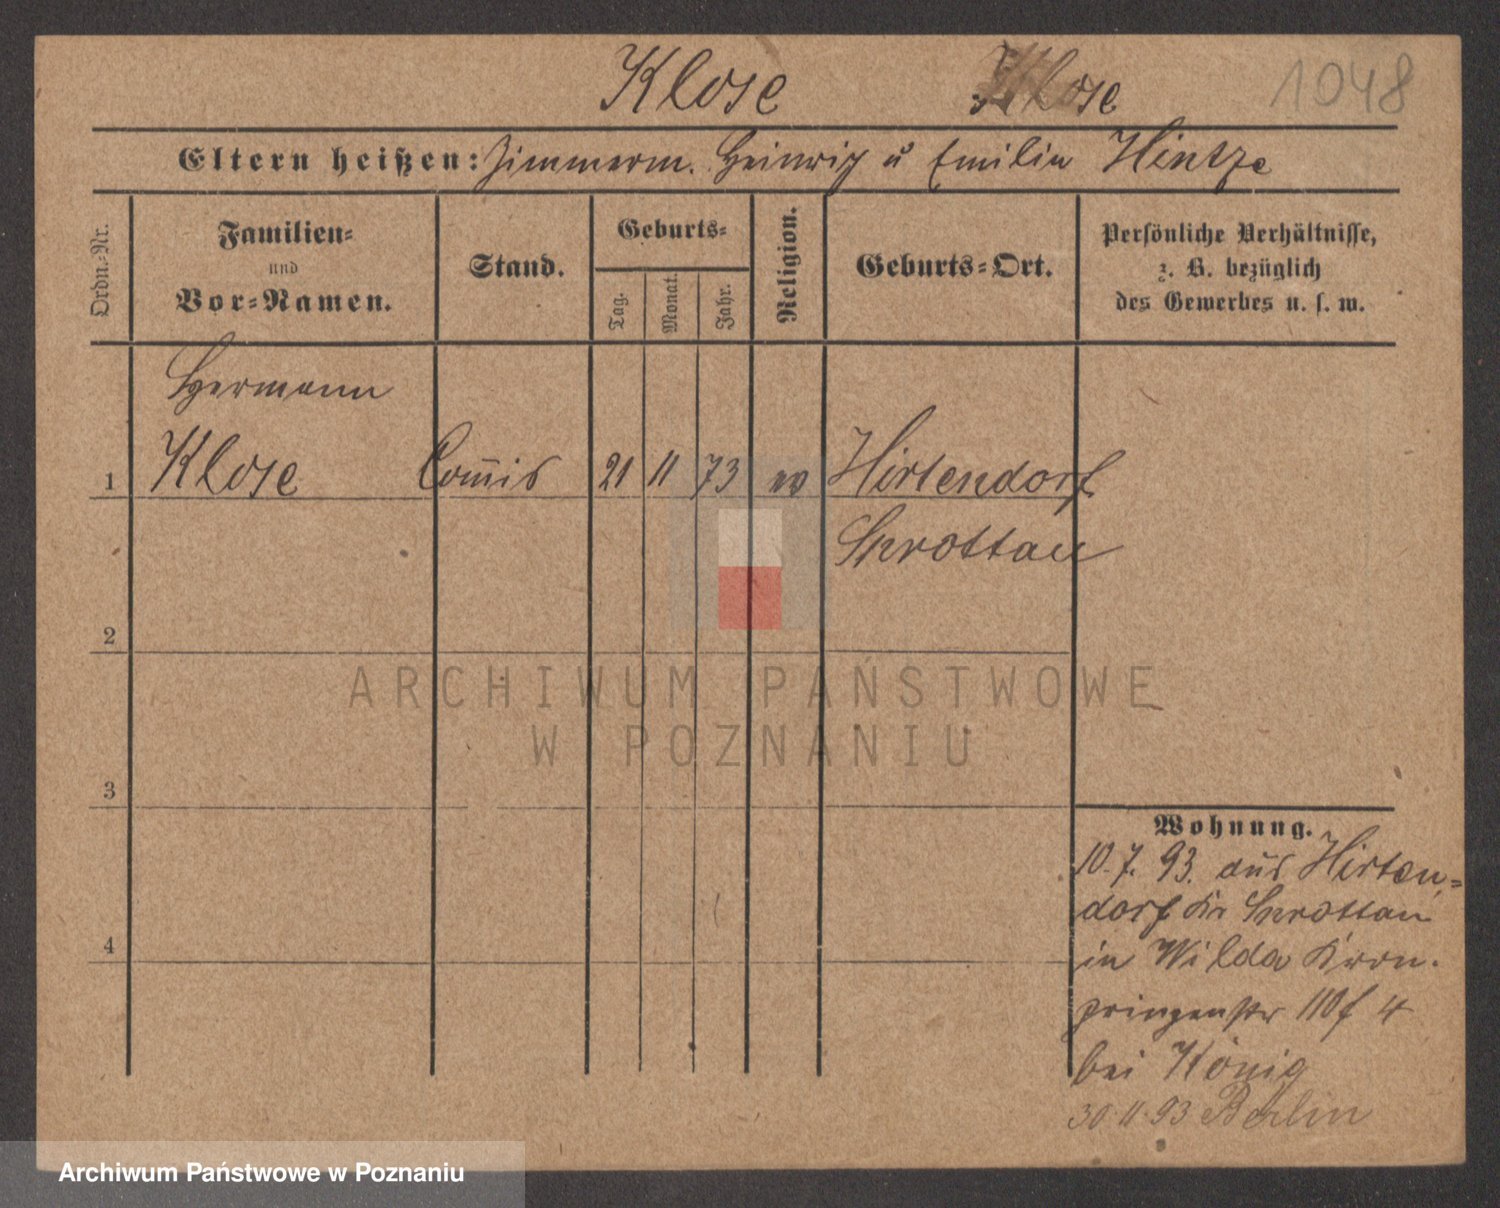 Klose Klose 1048
Eltern heißen: Zimmerm. Heinrich u Emilie Hintze
Ordn.-Nr.
Familien-
und
Vor-Namen.
Stand.
Geburts-
Tag.
Monat.
Jahr.
Religion.
Geburts-Ort.
Persönliche Verhältnisse,
z. B. bezüglich
des Gewerbes u. s. w.
Hermann
1 Klose Commis 21 11 73 ev Hirtendorf
Sprottau
2
ARCHIWUM PAŃSTWOWE
W POZNANIU
3
4
Wohnung.
10. 7. 93. aus Hirten-
dorf Kr Sprottau
in Wilda Kron-
prinzenstr 110f 4
bei König
30 11 93 Berlin
Archiwum Państwowe w Poznaniu